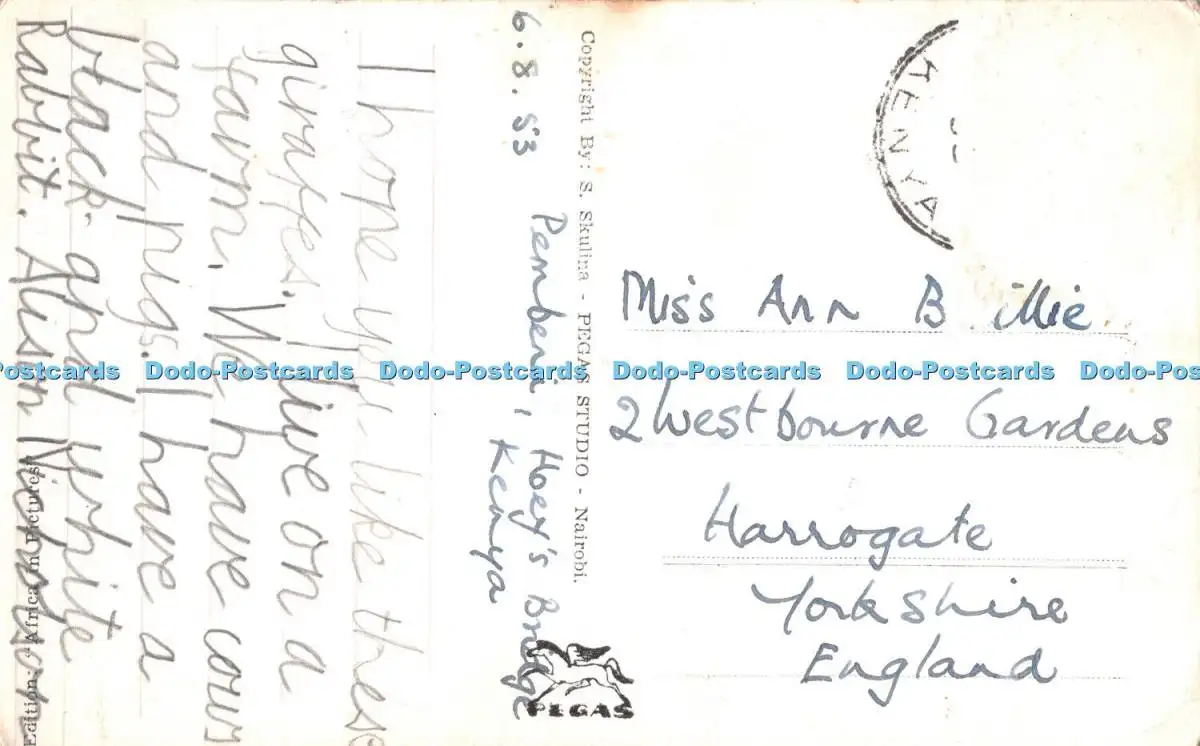 6.8.53
Pemberi, Hoey's Bridge
Kenya
I hope you like these
giraffes. I live on a
farm. We have cows
and pigs. I have a
black and white
Rabbit. Alison Nicholson
Edition: "African Pictures"
Copyright By: S. Skulina - PEGAS STUDIO - Nairobi.
PEGAS
KENYA
Miss Ann B illie
2 Westbourne Gardens
Harrogate
Yorkshire
England
Dodo-Postcards Dodo-Postcards Dodo-Postcards Dodo-Postcards Dodo-Postcards